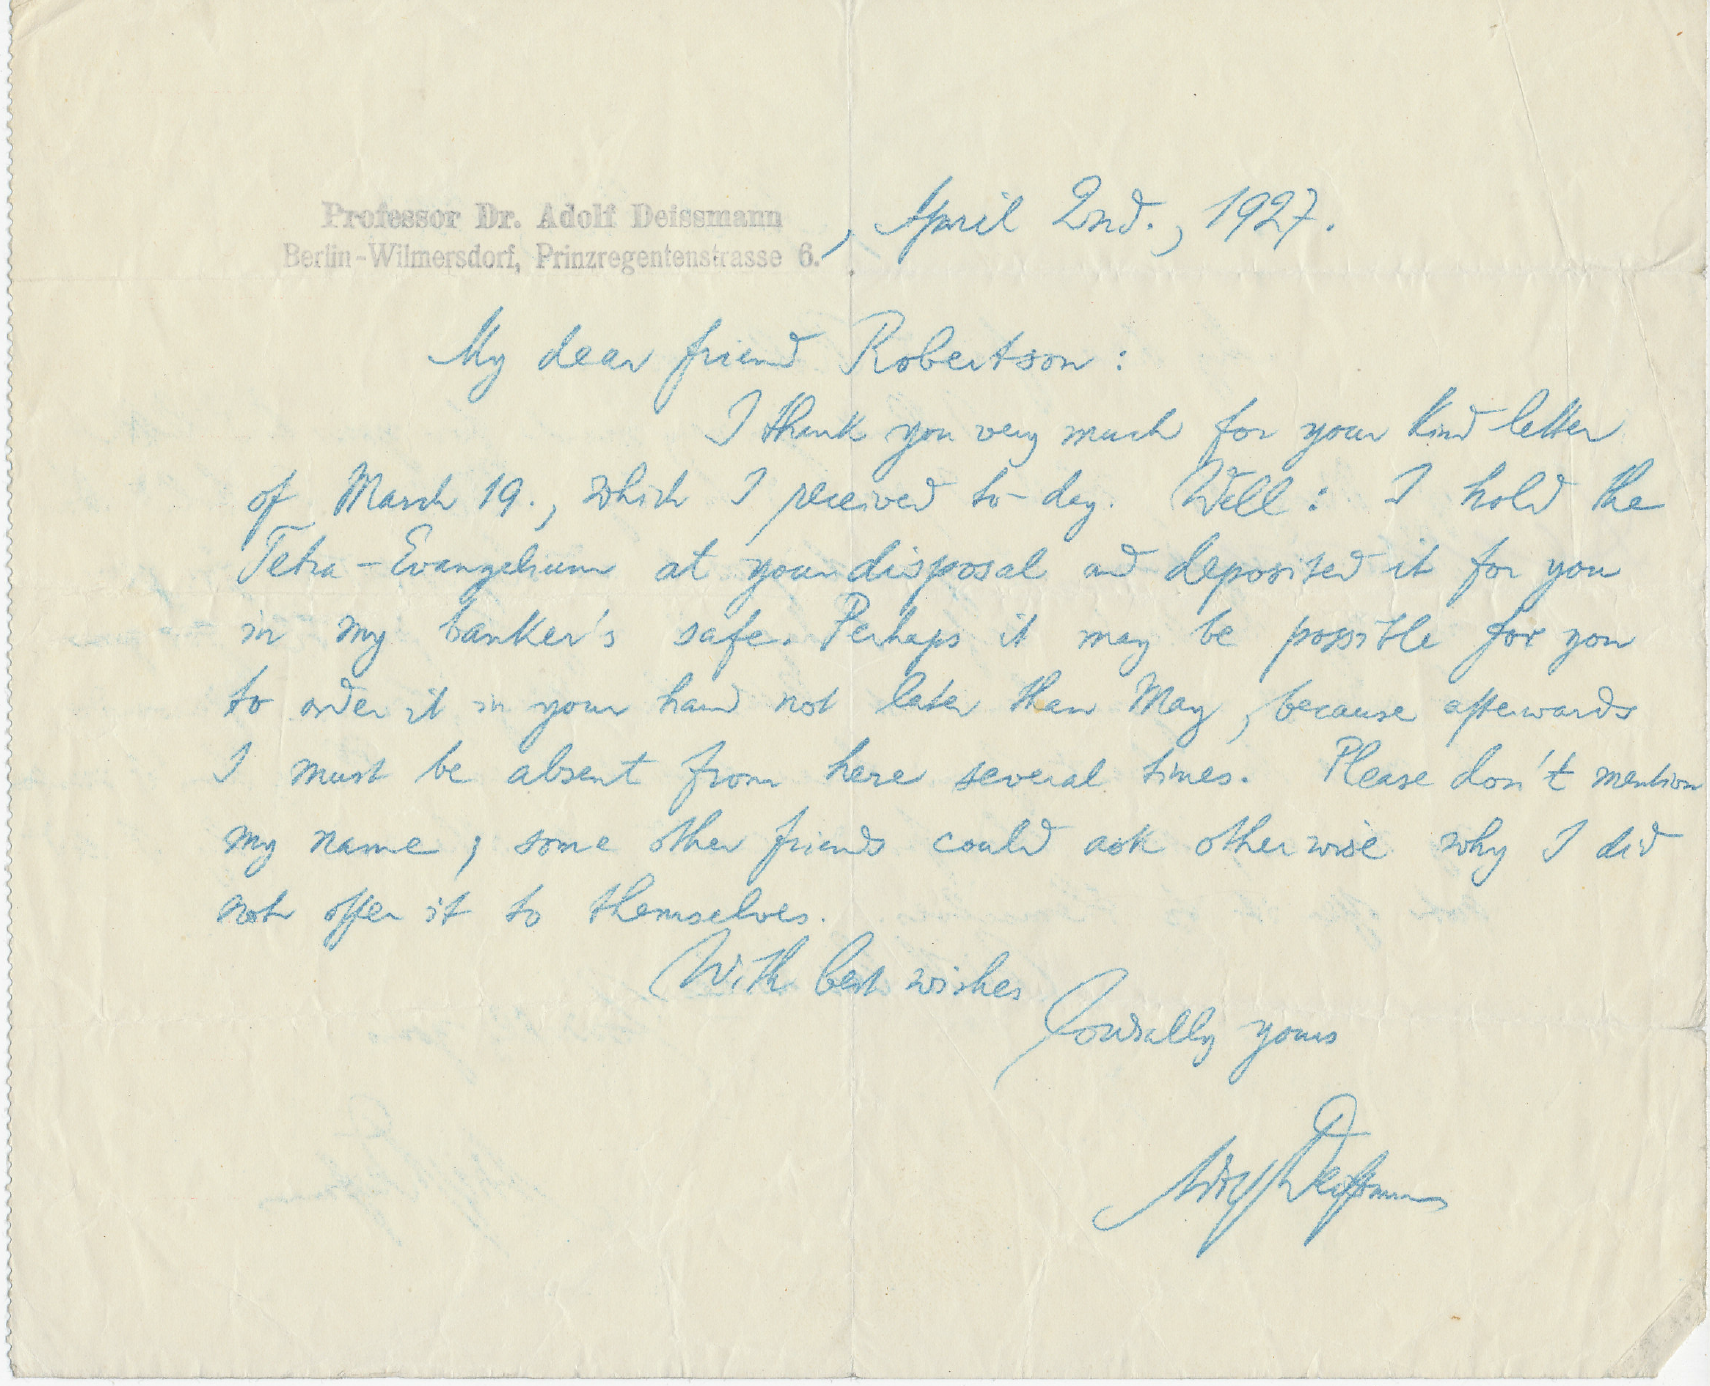 Professor Dr. Adolf Deissmann
Berlin-Wilmersdorf, Prinzregentenstrasse 6.
, April 2nd., 1927.
My dear friend Robertson:
I thank you very much for your kind letter
of March 19., which I received to-day. Well: I hold the
Tetra-Evangelium at your disposal and deposited it for you
in my banker's safe. Perhaps it may be possible for you
to order it in your hand not later than May, because afterwards
I must be absent from here several times. Please don't mention
my name; some other friends could ask otherwise why I did
not offer it to themselves.
With best wishes
Cordially yours
Adolf Deißmann